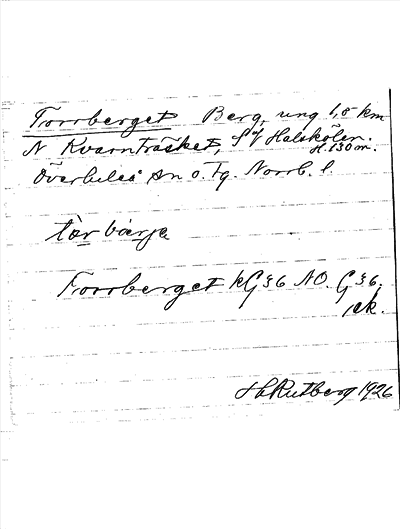 Torrberget Berg, ung 1,5 km
N Kvarnträsket, SV Halskölen.
H. 130 m.
Överluleå sn o. Tg. Norrb. l.
tòr bárja
Torrberget kG36 NO. G36.
ek.
H Rutberg 1926